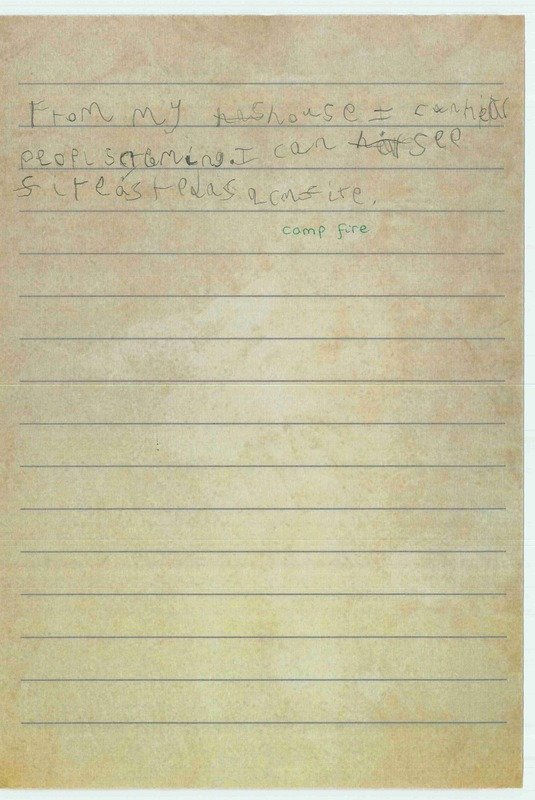 From my house I can hear
peopl scraming. I can see
fire as redas acmfire.
camp fire